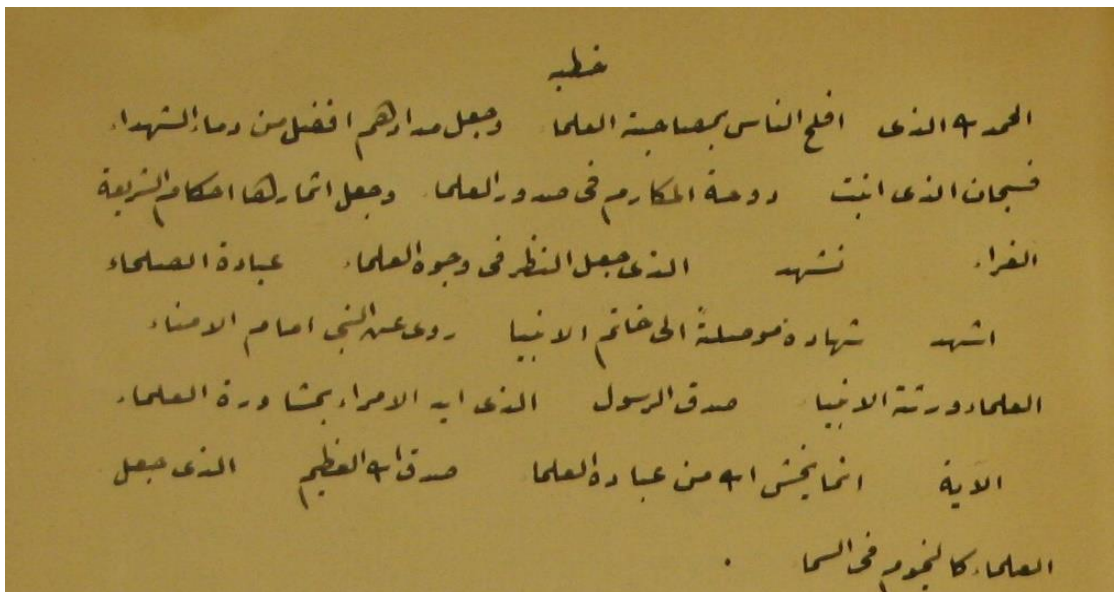 خطبه
الحمد لله الذى افلح الناس بمصاحبة العلما وجعل مدادهم افضل من دماء الشهداء
فسبحان الذى انبت دوحة المكارم فى صدور العلماء وجعل اثمارها احكام الشريعة
الغراء نشهد الذى جعل النظر فى وجوه العلماء عبادة الصلحاء
اشهد شهادة موصلةً الى خاتم الانبيا روى عن النبى امام الامناء
العلماء ورثة الانبياء صدق الرسول الذى ايد الامراء بمشاورة العلماء
الآية انما يخشى الله من عباده العلما صدق الله العظيم الذى جعل
العلماء كالنجوم فى السما .